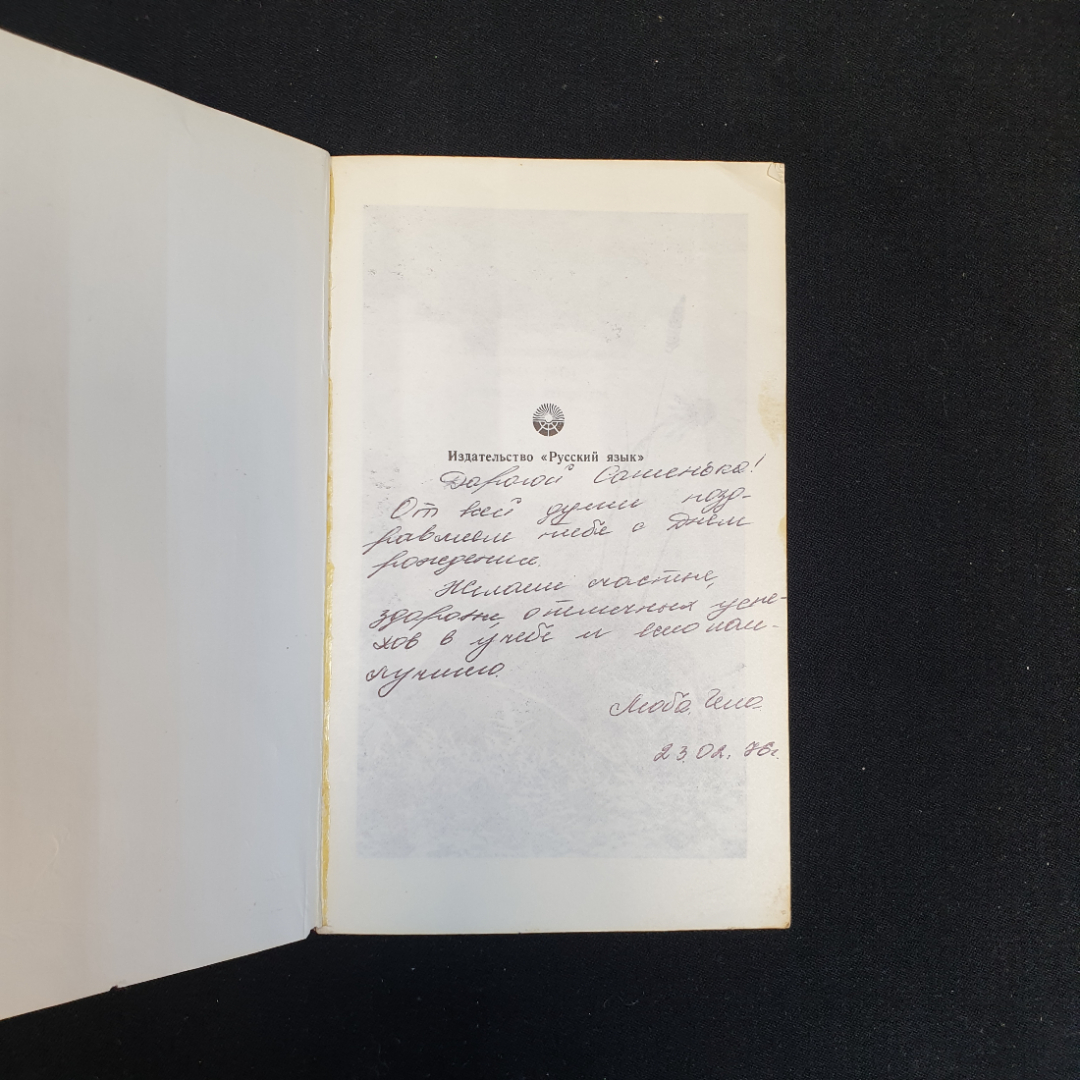 Издательство «Русский язык»
Дорогой Сашенька!
От всей души позд-
равляем тебя с Днем
рождения.
Желаем счастья,
здоровья, отличных успе-
хов в учебе и всего наи-
лучшего.
Люба.
23.02.76г.